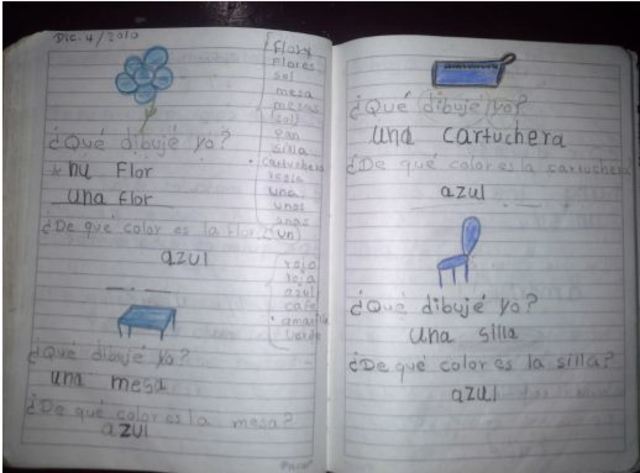 Dic. 4/2010
¿Qué dibujé yo?
* nu Flor
una flor
¿De qué color es la flor?
azul
¿Qué dibujé yo?
una mesa
¿De qué color es la mesa?
azul
Flor
Flores
sol
mesa
mesas
sol
pan
silla
• cartuchera
regla
una
unos
unas
(un)
rojo
roja
azul
café
• amarillo
verde
¿Qué dibujé yo?
una cartuchera
¿De qué color es la cartuchera
azul
¿Qué dibujé yo?
una silla
¿De qué color es la silla?
azul